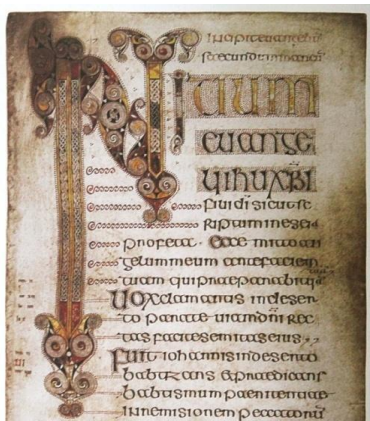 Incipit euangeli
secundum marcum
INitium
euange
lii ihu xpi
fili di sicut sc
riptum in esei
profeta · ecce mitto an
gelum meum ante faciem
tuam qui praeparabit
Uox clamantis in deser
to parate uiam dni rec
tas facite semitas eius
Fuit iohannis in deserto
babtizans & praedicans
babtismum paenitentiae
in remisionem peccatorū